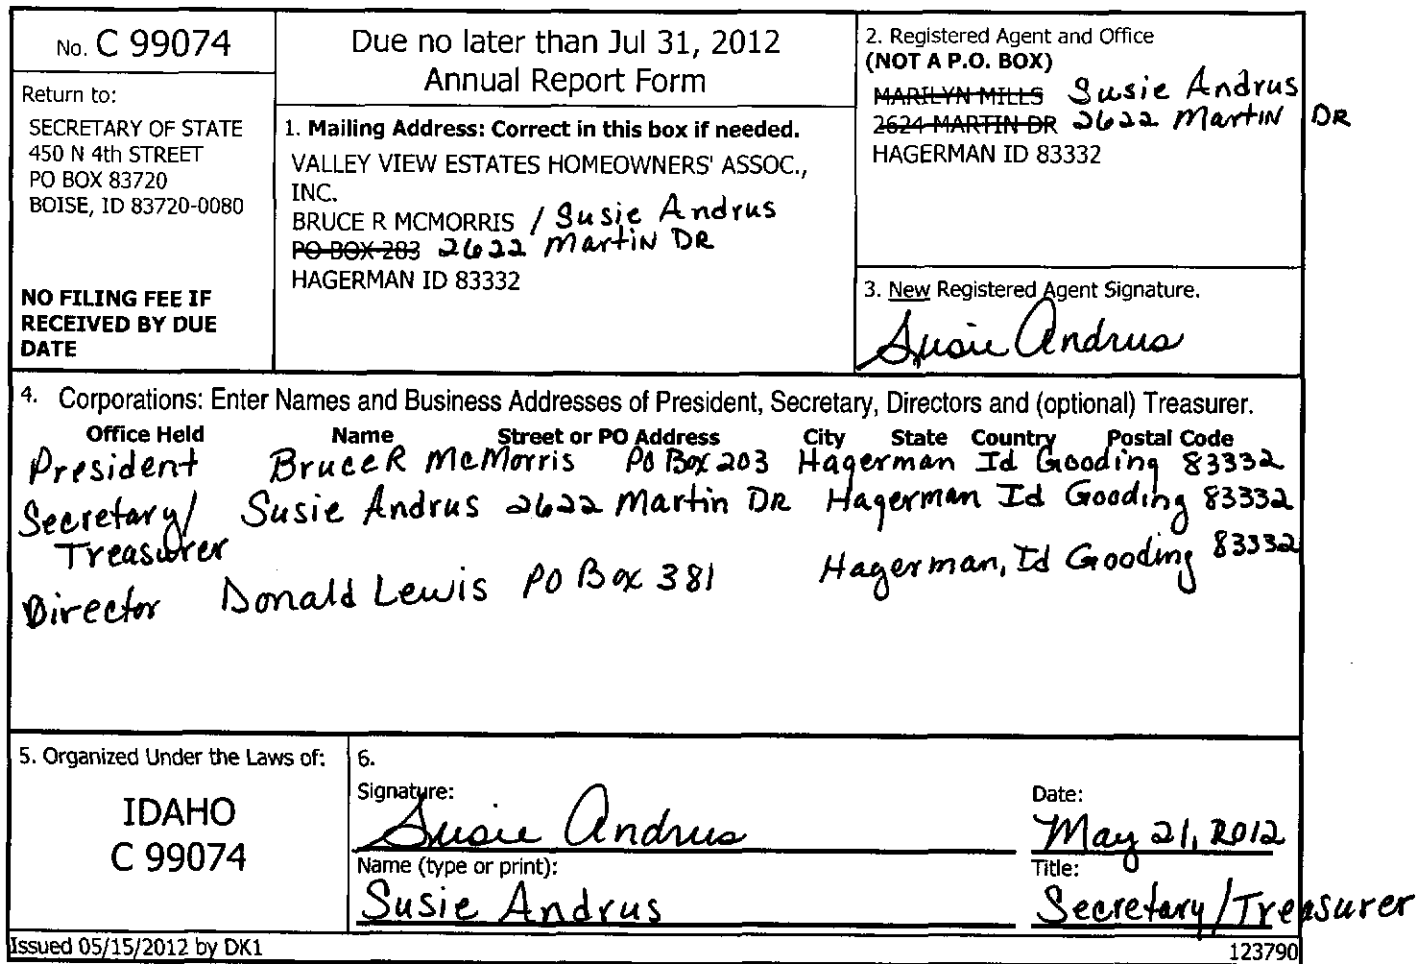 No. C 99074
Return to:
SECRETARY OF STATE
450 N 4th STREET
PO BOX 83720
BOISE, ID 83720-0080
NO FILING FEE IF
RECEIVED BY DUE
DATE
Due no later than Jul 31, 2012
Annual Report Form
1. Mailing Address: Correct in this box if needed.
VALLEY VIEW ESTATES HOMEOWNERS' ASSOC.,
INC.
BRUCE R MCMORRIS / Susie Andrus
PO BOX 283 2622 Martin DR
HAGERMAN ID 83332
2. Registered Agent and Office
(NOT A P.O. BOX)
MARILYN MILLS Susie Andrus
2624 MARTIN DR 2622 Martin DR
HAGERMAN ID 83332
3. New Registered Agent Signature.
Susie Andrus
4. Corporations: Enter Names and Business Addresses of President, Secretary, Directors and (optional) Treasurer.
Office Held Name Street or PO Address City State Country Postal Code
President Bruce R McMorris PO Box 203 Hagerman Id Gooding 83332
Secretary/ Susie Andrus 2622 Martin DR Hagerman Id Gooding 83332
Treasurer
Director Donald Lewis PO Box 381 Hagerman, Id Gooding 83332
5. Organized Under the Laws of:
IDAHO
C 99074
6.
Signature: Date:
Susie Andrus May 21, 2012
Name (type or print): Title:
Susie Andrus Secretary/Treasurer
Issued 05/15/2012 by DK1 123790